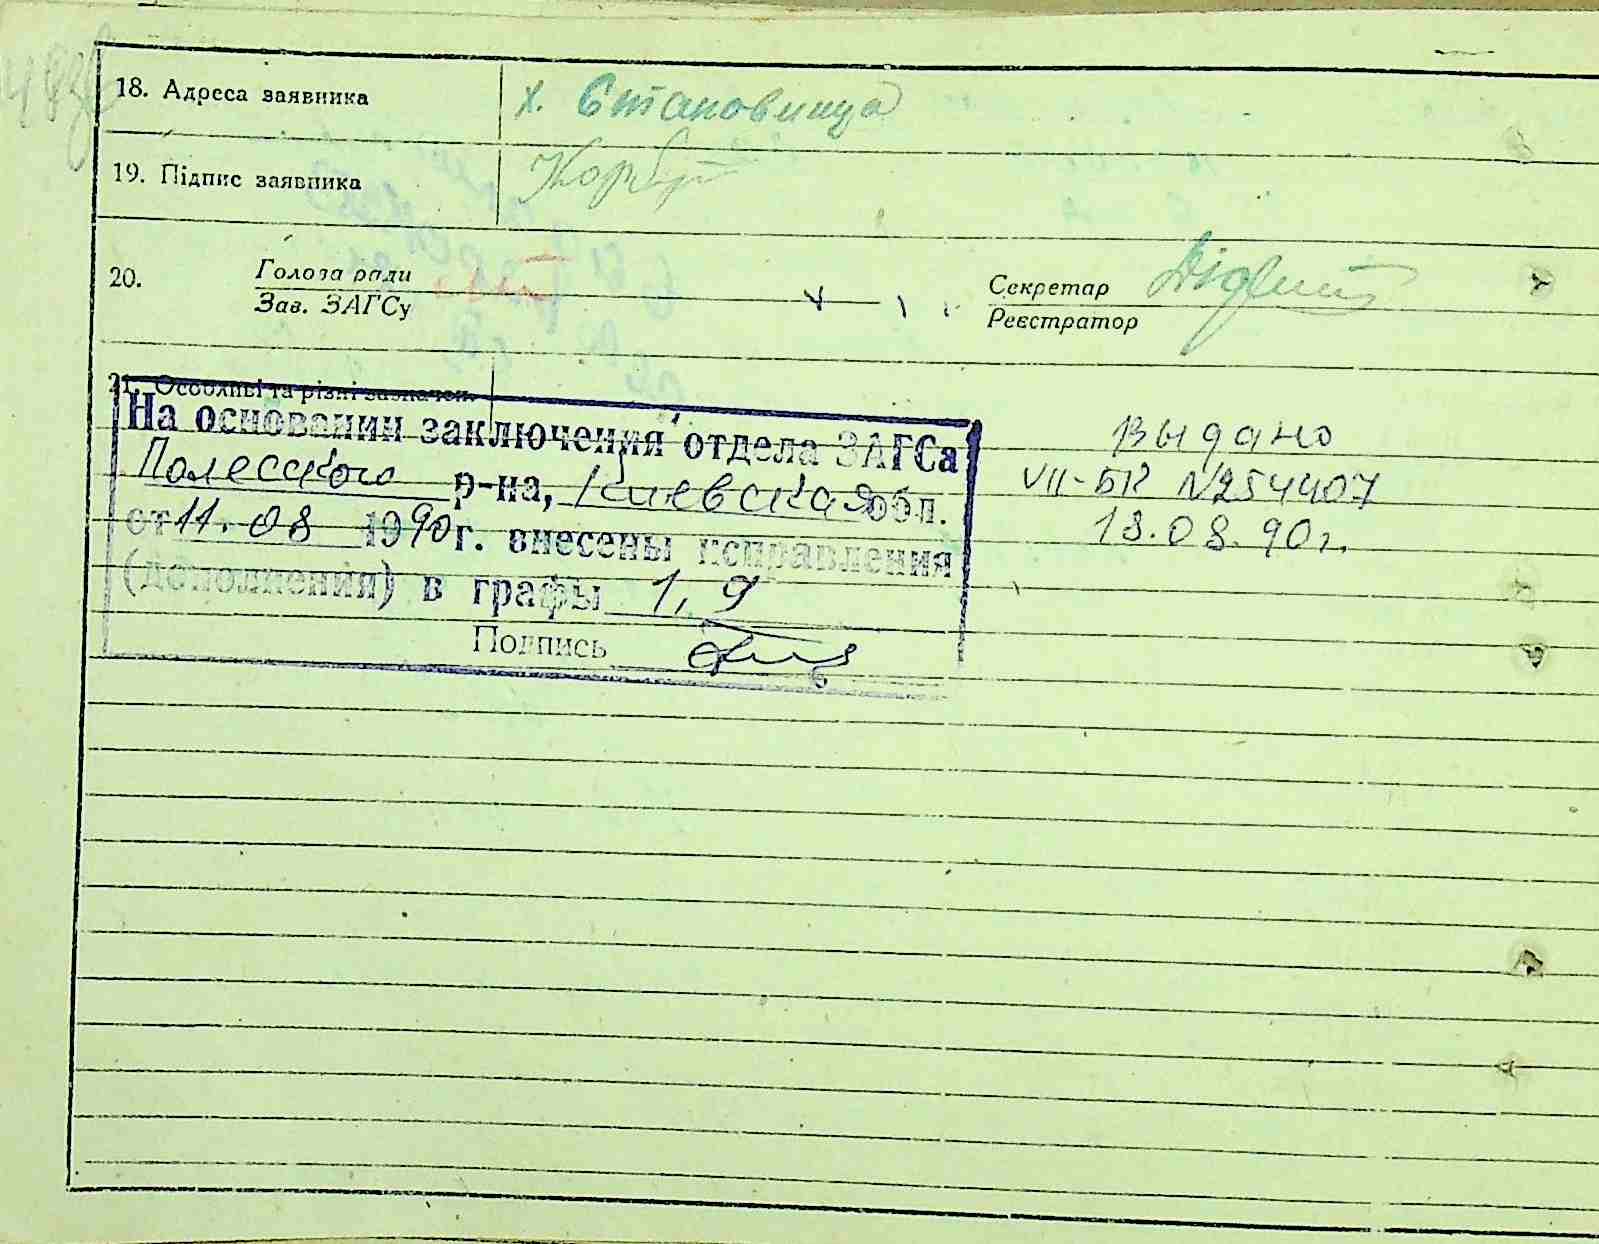 18. Адреса заявника х. Становища
19. Підпис заявника Корбут
20. Голова ради
Зав. ЗАГСу
Секретар
Реєстратор
21. Особливі та різні зазначен.
На основании заключения отдела ЗАГСа
Полесского р-на, Киевская обл.
от 11.08 1990 г. внесены исправления
(дополнения) в графы 1, 9
Подпись
Выдано
VII-БК №254407
18.08.90г.